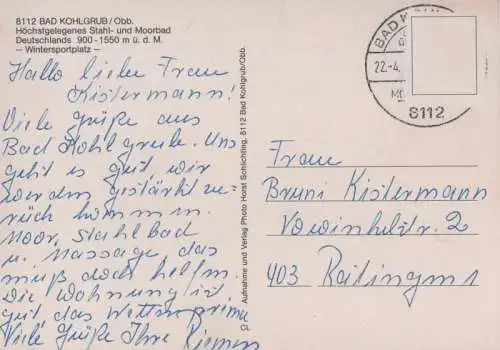 8112 BAD KOHLGRUB/Obb.
Höchstgelegenes Stahl- und Moorbad
Deutschlands 900-1550 m ü. d. M.
— Wintersportplatz —
Hallo liebe Frau
Kistermann!
Viele Grüße aus
Bad Kohlgrub. Uns
geht es gut, wir
werden gestärkt zu-
rück kommen.
Moor, Stahlbad
u. Massage, das
muß doch helfen.
Die Wohnung ist
gut, das Wetter prima
Viele Grüße Ihre
CL
Aufnahme und Verlag Photo Horst Schlichtling, 8112 Bad Kohlgrub/Obb.
BAD
22.-4.
8112
Frau
Bruni Kistermann
2
403 Ratingen